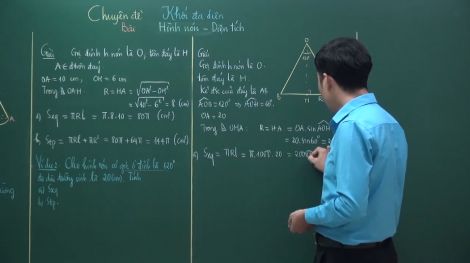 Chuyên đề Khối đa diện
Bài: Hình nón - Diện tích
Giải: Gọi đỉnh h nón là O, tâm đáy là H
A ∈ đtròn đáy
OA = 10 cm, OH = 6 cm
Trong Δ OHA : R = HA = √(OA² - OH²)
= √(10² - 6²) = 8 (cm)
a) Sxq = πRl = π.8.10 = 80π (cm²)
b) Stp = πRl + πR² = 80π + 64π = 144π (cm²)
Ví dụ 2: Cho hình nón có góc ở đỉnh là 120°
độ dài đường sinh là 20 (cm). Tính
a) Sxq
b) Stp
Giải
Gọi đỉnh h nón là O
tâm đáy là H.
là AB
AOB = 120° ⇒ AOH = 60°
OA = 20
Trong Δ OHA : R = HA = OA. sin AOH
= 20. sin 60° =
a) Sxq = πRl = π.10√3.20 = 200
O
B
H